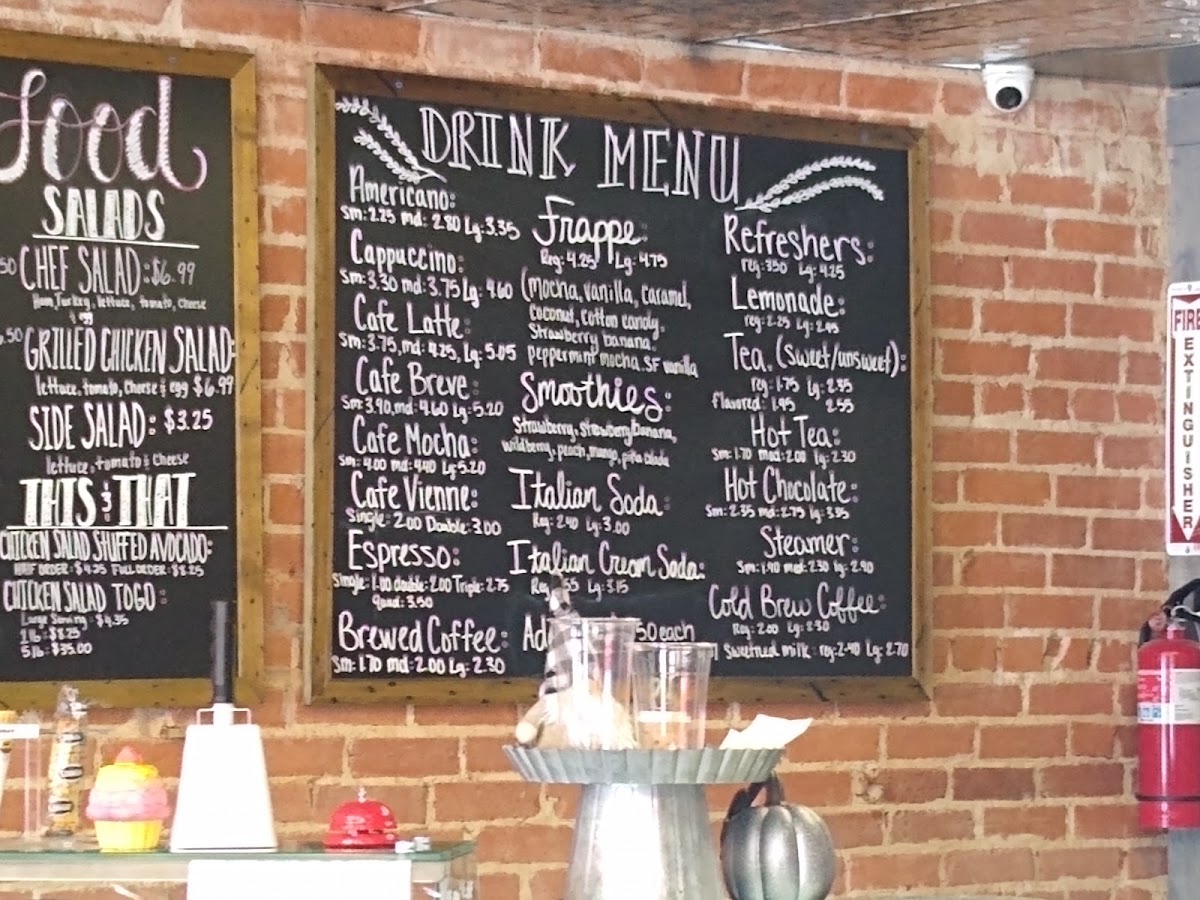 Food
SALADS
CHEF SALAD: $6.99
Ham, Turkey, lettuce, tomato, cheese
& egg
GRILLED CHICKEN SALAD:
lettuce, tomato, cheese & egg $6.99
SIDE SALAD: $3.25
lettuce, tomato & cheese
THIS & THAT
CHICKEN SALAD STUFFED AVOCADO:
HALF ORDER: $4.35 FULL ORDER: $8.25
CHICKEN SALAD TO GO:
Large Serving: $4.35
1 lb: $8.25
5 lb: $35.00
DRINK MENU
Americano:
Sm: 2.25 md: 2.80 Lg: 3.35
Cappuccino:
Sm: 3.30 md: 3.75 Lg: 4.60
Cafe Latte:
Sm: 3.75, md: 4.25, Lg: 5.05
Cafe Breve:
Sm: 3.90, md: 4.60 Lg: 5.20
Cafe Mocha:
Sm: 4.00 md: 4.40 Lg: 5.20
Cafe Vienne:
Single: 2.00 Double: 3.00
Espresso:
Single: 1.00 double: 2.00 Triple: 2.75
Quad: 3.50
Brewed Coffee:
Sm: 1.70 md: 2.00 Lg: 2.30
Frappe:
Reg: 4.25 Lg: 4.75
(mocha, vanilla, caramel,
coconut, cotton candy,
strawberry banana,
peppermint mocha, SF vanilla
Smoothies:
Strawberry, Strawberry banana,
wildberry, peach, mango, piña colada
Italian Soda:
Reg: 2.40 Lg: 3.00
Italian Cream Soda:
Reg 55 Lg: 3.15
Ad 50 each
Refreshers:
reg: 3.50 Lg: 4.25
Lemonade:
reg: 2.25 Lg: 2.95
Tea, (sweet/unsweet):
reg: 1.75 Lg: 2.35
flavored: 1.95 2.55
Hot Tea:
Sm: 1.70 med: 2.00 Lg: 2.30
Hot Chocolate:
Sm: 2.35 md: 2.75 Lg: 3.35
Steamer:
Sm: 1.90 med: 2.30 Lg: 2.90
Cold Brew Coffee:
Reg: 2.00 Lg: 2.30
Sweetned milk: reg: 2.40 Lg: 2.70
FIRE
EXTINGUISHER